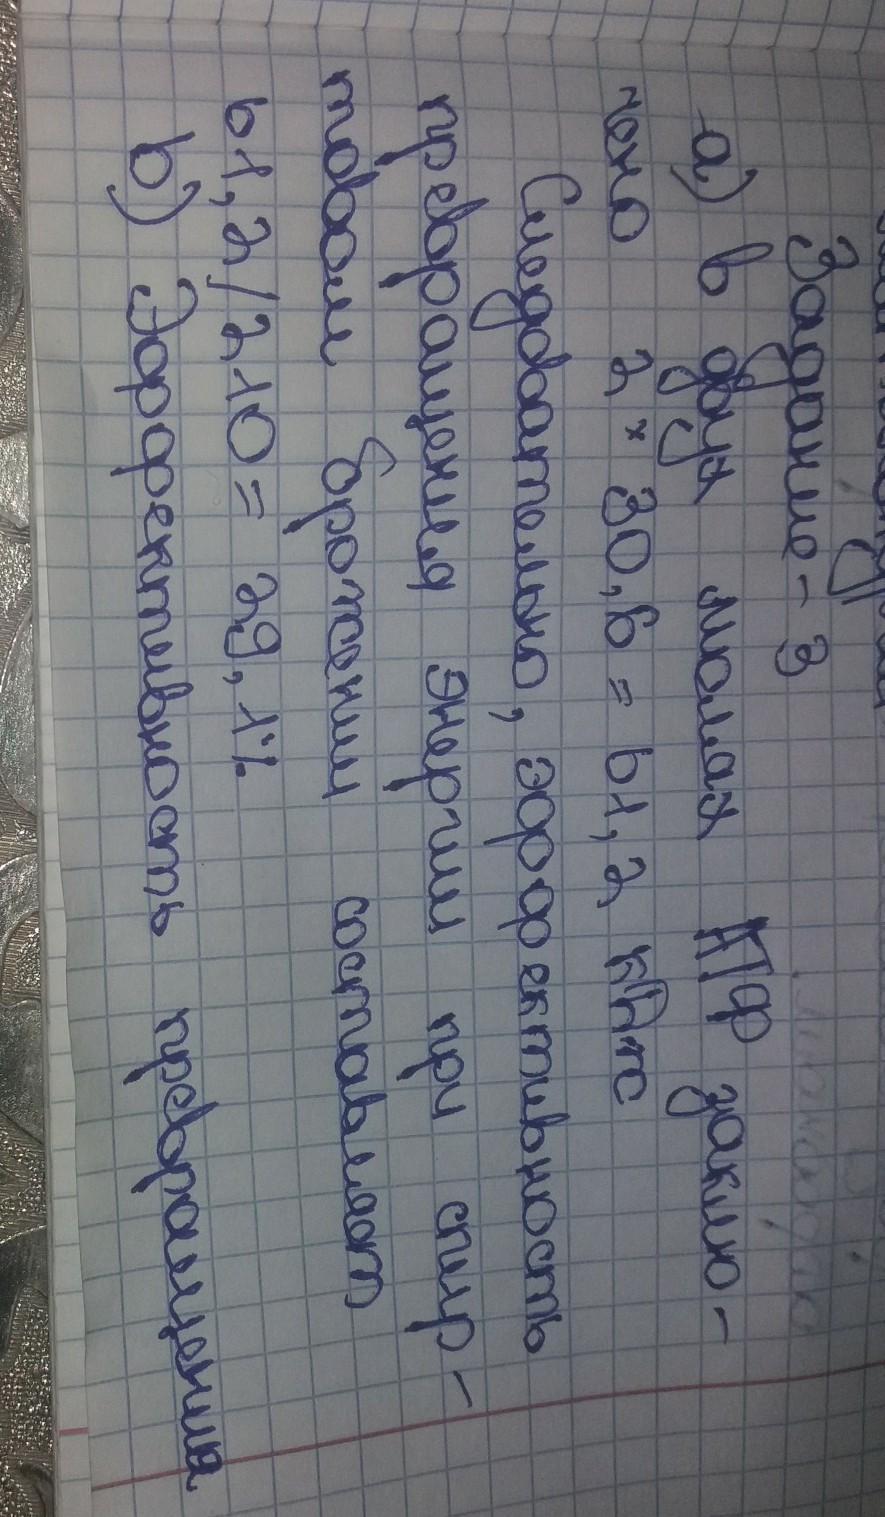 Задание-3
а) в двух молях АТФ заклю-
чено 2 × 30,6 = 61,2 кДж
Следовательно, эффективность
превращения энергии при спир-
товом брожении составляет
61,2/210 = 29,1%
b) Эффективность превращения